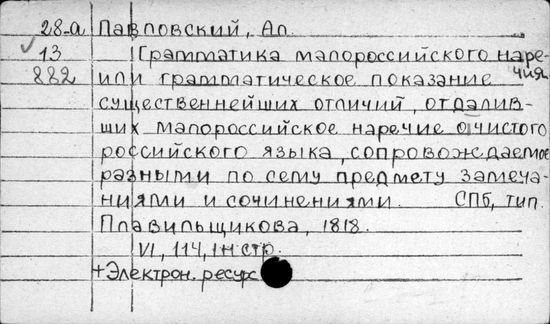 28-а Павловский, Ал.
13 Грамматика малороссийского наре-
882 или грамматическое показание чия,
существеннейших отличий, отдалив-
ших малороссийское наречие от чистого
российского языка, сопровождаемое
разными по сему предмету замеча-
ниями и сочинениями. СПб, тип.
Плавильщикова, 1818.
VI, 114, 1 н стр.
+Электрон. ресурс